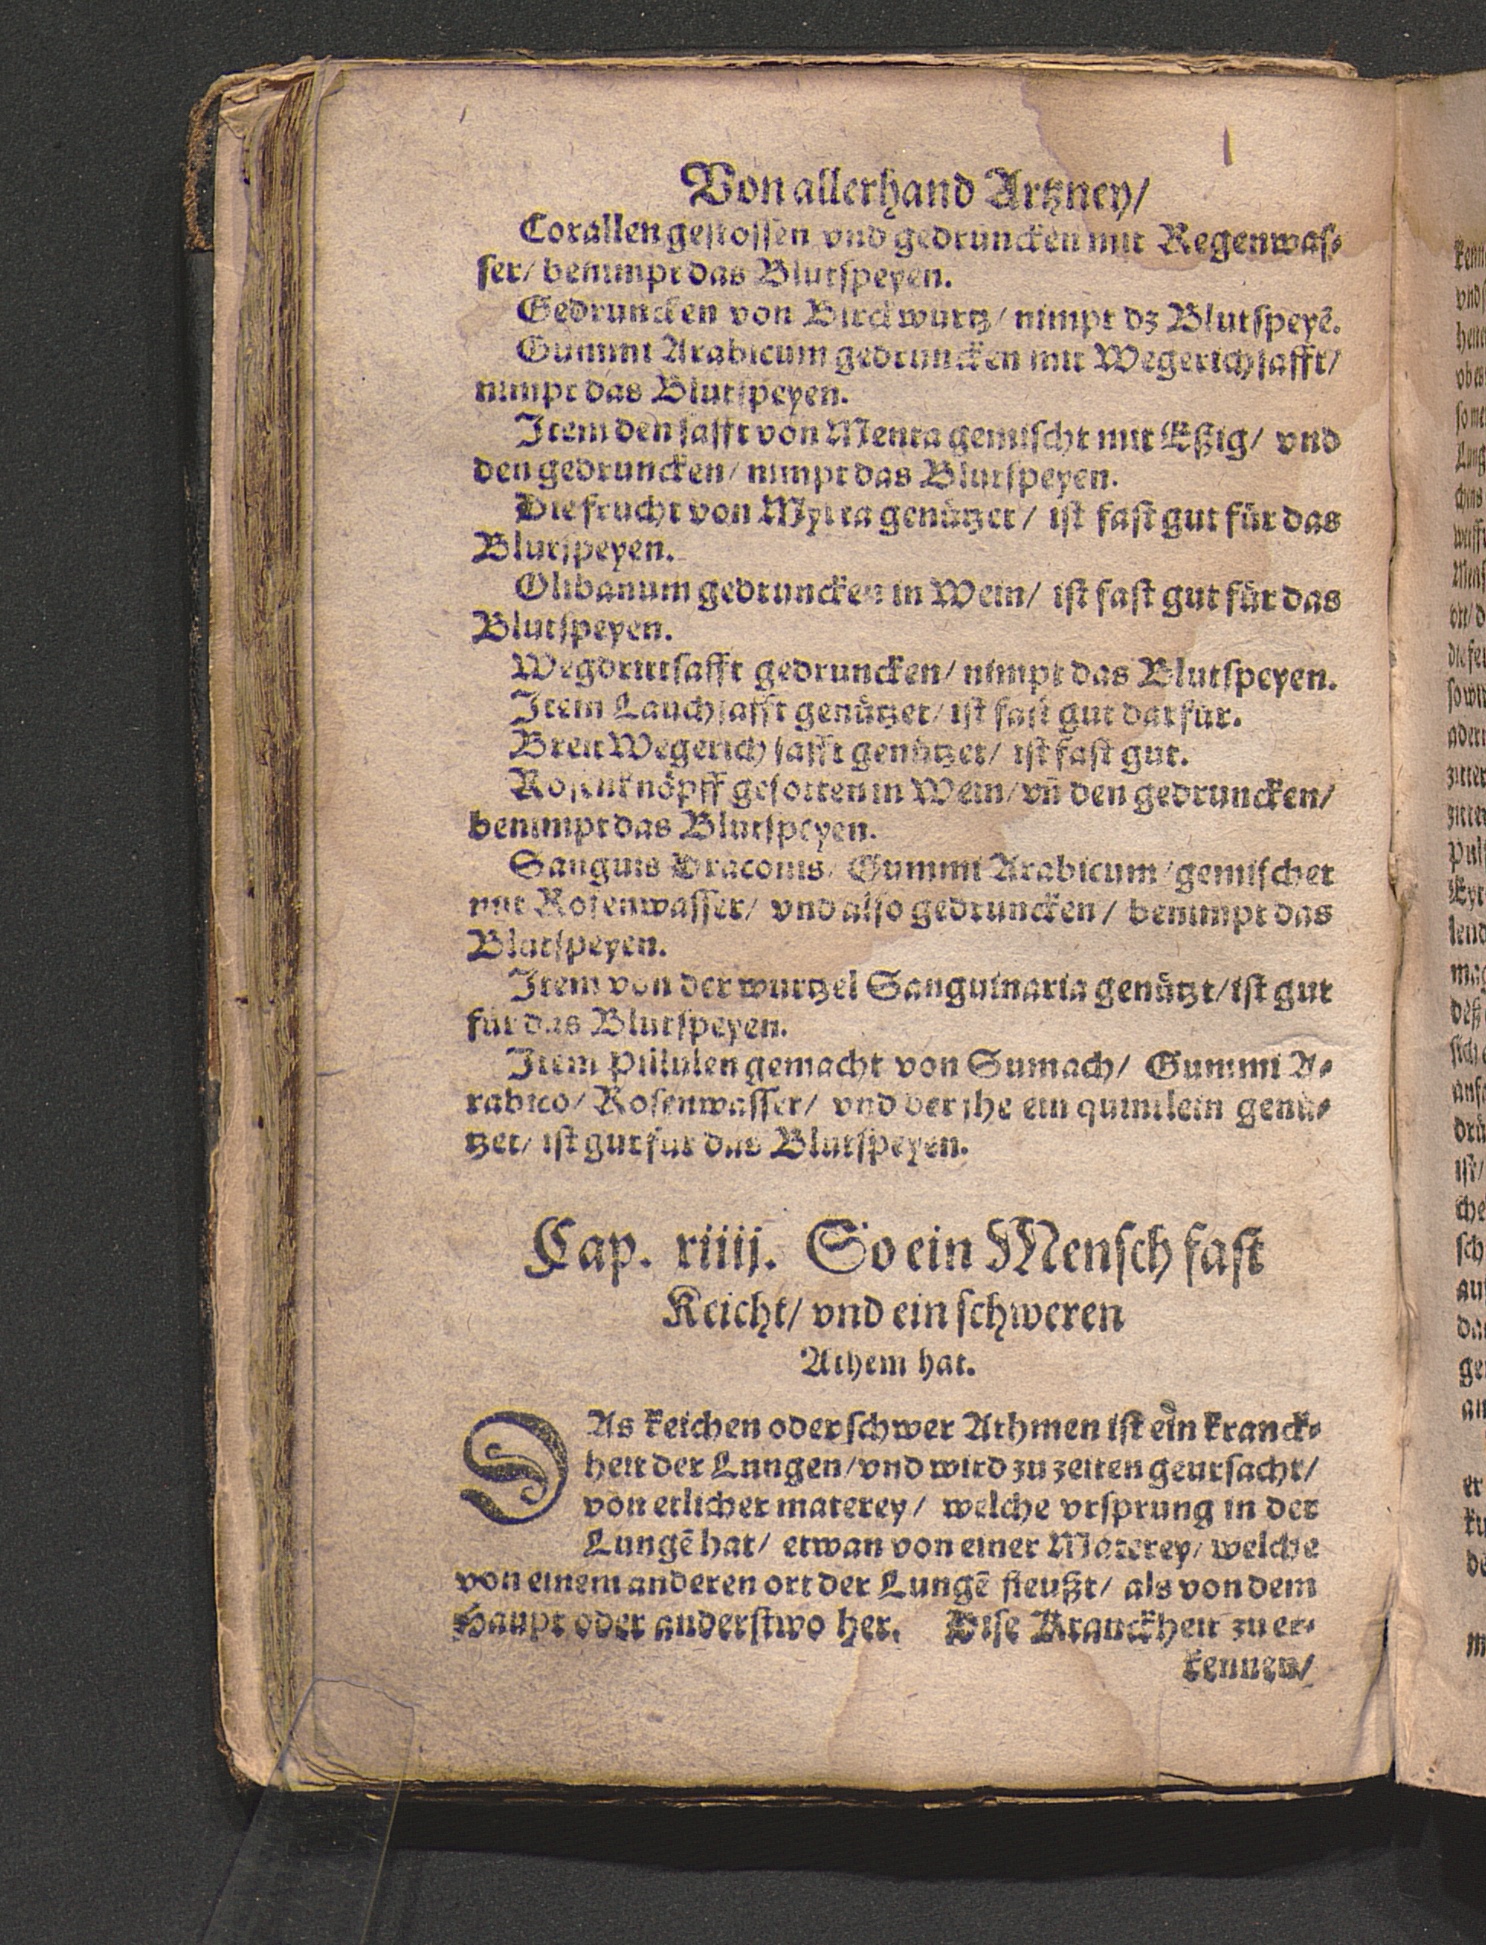 Von allerhand Artzney/
Corallen gestossen vnd gedruncken mit Regenwas⸗
ser/ benimpt das Blutspeyen.
Gedruncken von Birckwurtz/ nimpt dz Blutspeyẽ.
Gummi Arabicum gedruncken mit Wegerichsafft/
nimpt das Blutspeyen.
Item den safft von Menta gemischt mit Eßig/ vnd
den gedruncken/ nimpt das Blutspeyen.
Die frucht von Myrra genützet/ ist fast gut für das
Blutspeyen.
Olibanum gedruncken in Wein/ ist fast gut für das
Blutspeyen.
Wegdrittsafft gedruncken/ nimpt das Blutspeyen.
Item Lauchsafft genützet/ ist fast gut darfür.
Breit Wegerich safft genützet/ ist fast gut.
Rosenknöpff gesotten in Wein/ vñ den gedruncken/
benimpt das Blutspeyen.
Sanguis Draconis/ Gummi Arabicum/ gemischet
mit Rosenwasser/ vnd also gedruncken/ benimpt das
Blutspeyen.
Item von der wurtzel Sanguinaria genützt/ ist gut
für das Blutspeyen.
Item Pillulen gemacht von Sumach/ Gummi A⸗
rabico/ Rosenwasser/ vnd der ihe ein quintlein genü⸗
tzet/ ist gut für das Blutspeyen.
Cap. xiiij. So ein Mensch fast
Keicht/ vnd ein schweren
Athem hat.
DAs keichen oder schwer Athmen ist ein kranck⸗
heit der Lungen/ vnd wird zu zeiten geursacht/
von etlicher materey/ welche vrsprung in der
Lungẽ hat/ etwan von einer Materey/ welche
von einem anderen ort der Lungẽ fleußt/ als von dem
Haupt oder anderstwo her. Dise Kranckheit zu er⸗
kennen/